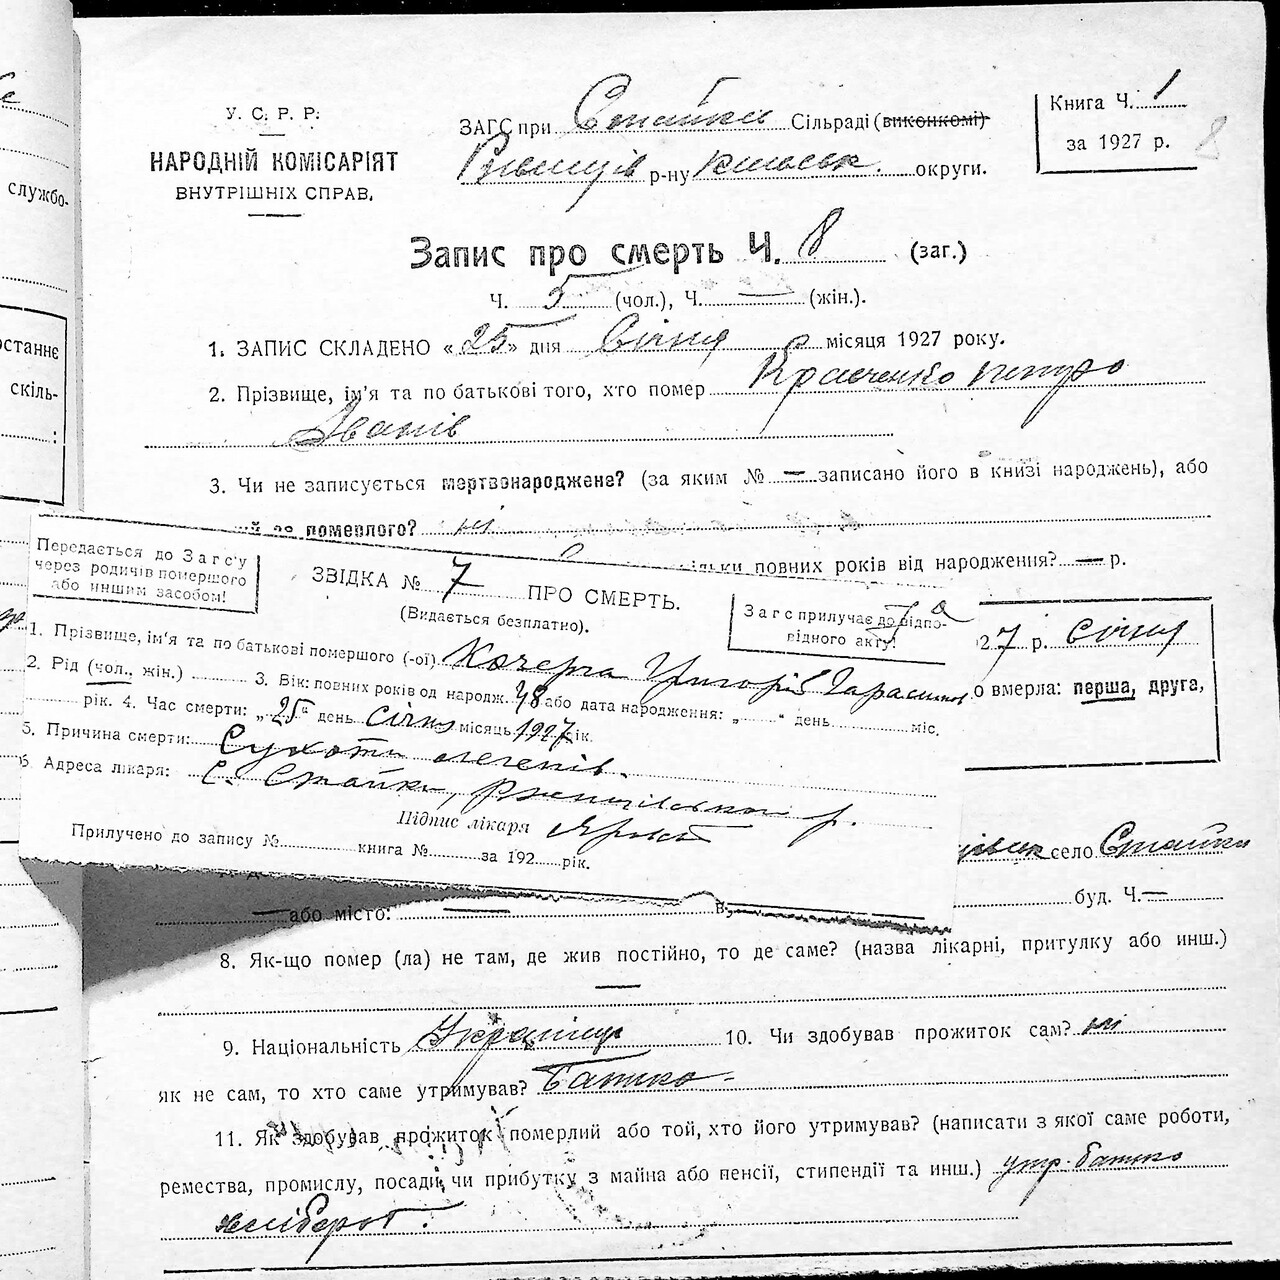 У. С. Р. Р.
НАРОДНІЙ КОМІСАРІЯТ
ВНУТРІШНІХ СПРАВ.
ЗАГС при Стайки Сільраді (виконкомі)
р-ну округи.
Книга Ч. 1
за 1927 р.
8
Запис про смерть Ч. 8 (заг.)
Ч. 5 (чол.), Ч. — (жін.).
1. ЗАПИС СКЛАДЕНО «25» дня Січня місяця 1927 року.
2. Прізвище, ім'я та по батькові того, хто помер Кравченко Петро
Іванів
3. Чи не записується мертвонароджене? (за яким № — записано його в книзі народжень), або
померлого? ні
повних років від народження? — р.
7 р. січня
вмерла: перша, друга,
село Стайки
буд. Ч. —
— або місто: — в.
8. Як-що помер (ла) не там, де жив постійно, то де саме? (назва лікарні, притулку або инш.)
—
9. Національність Українець 10. Чи здобував прожиток сам? ні
як не сам, то хто саме утримував? Батько
11. Як здобував прожиток померлий або той, хто його утримував? (написати з якої саме роботи,
ремества, промислу, посади, чи прибутку з майна або пенсії, стипендії та инш.) утр. батько
хлібороб.
Передається до Загс'у
через родичів помершого
або иншим засобом!
ЗВІДКА № 7 ПРО СМЕРТЬ.
(Видається безплатно).
Загс прилучає до відпо-
відного акту!
1. Прізвище, ім'я та по батькові помершого (-ої) Кочерга Григорій
2. Рід (чол., жін.) 3. Вік: повних років од народж. 48 або дата народження: „ “ день міс.
рік. 4. Час смерти: „25“ день січня місяць 1927 рік.
5. Причина смерти: Сухоти легенів.
6. Адреса лікаря: С. Стайки, р.
Підпис лікаря
Прилучено до запису № книга № за 192 рік.
службо-
останнє
скіль-
: